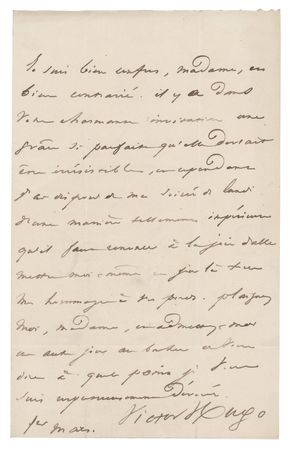 Je suis bien confus, madame, et
bien contrarié. il y a dans
votre charmante invitation une
grâce si parfaite qu'elle devrait
être irrésistible, et cependant
j'ai disposé de ma soirée de lundi
d'une manière tellement impérieuse
qu'il faut renoncer à la joie d'aller
mettre moi-même ce jour là
mes hommages à vos pieds. plaignez
moi, madame, et admettez-moi
un autre jour au bonheur de vous
dire à quel point je vous
suis respectueusement dévoué.
1er mars. Victor Hugo